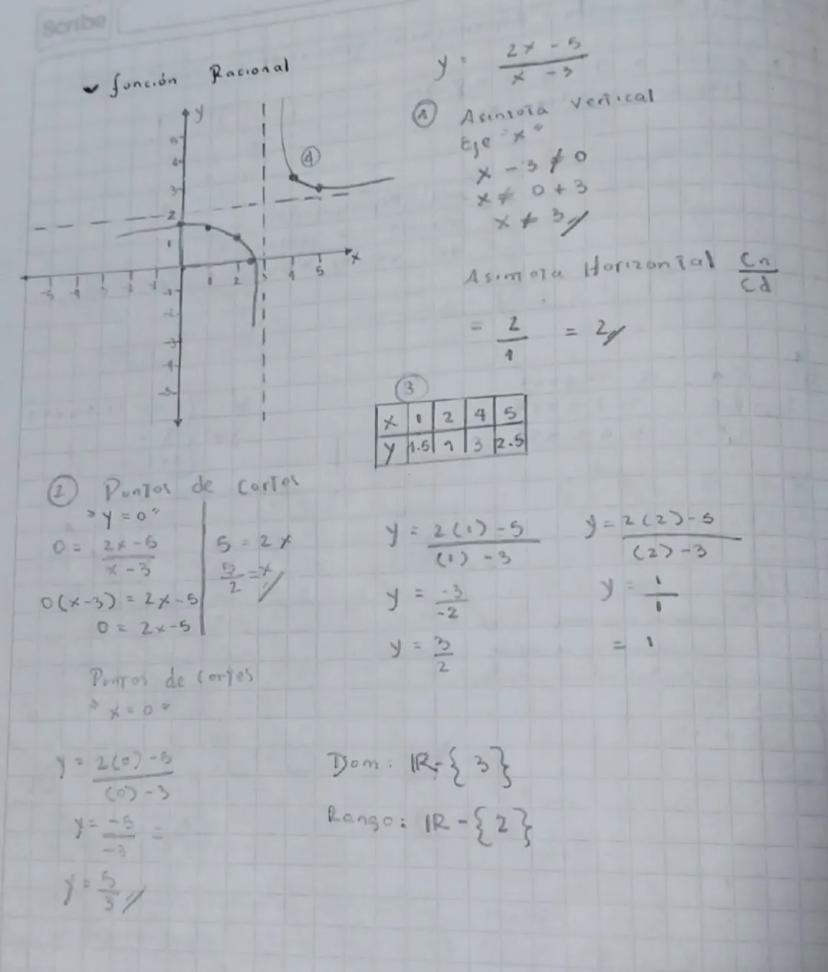 Scribe
✓ función Racional
y = 2x - 5 / x - 3
① Asintota Vertical
Eje "x"
x - 3 ≠ 0
x ≠ 0 + 3
x ≠ 3 //
Asintota Horizontal Cn / Cd
= 2 / 1 = 2 //
y
5
4
3
2
1
④
-5 -4 -3 -2 -1 1 2 3 4 5 x
-1
-2
-3
-4
-5
③
x 1 2 4 5
y 1.5 1 3 2.5
② Puntos de cortes
"y = 0"
0 = 2x - 5 / x - 3
0(x - 3) = 2x - 5
0 = 2x - 5
5 = 2x
5 / 2 = x //
Puntos de cortes
"x = 0"
y = 2(0) - 5 / (0) - 3
y = -5 / -3 =
y = 5 / 3 //
y = 2(1) - 5 / (1) - 3
y = -3 / -2
y = 3 / 2
y = 2(2) - 5 / (2) - 3
y = 1 / 1
= 1
Dom: IR - { 3 }
Rango: IR - { 2 }